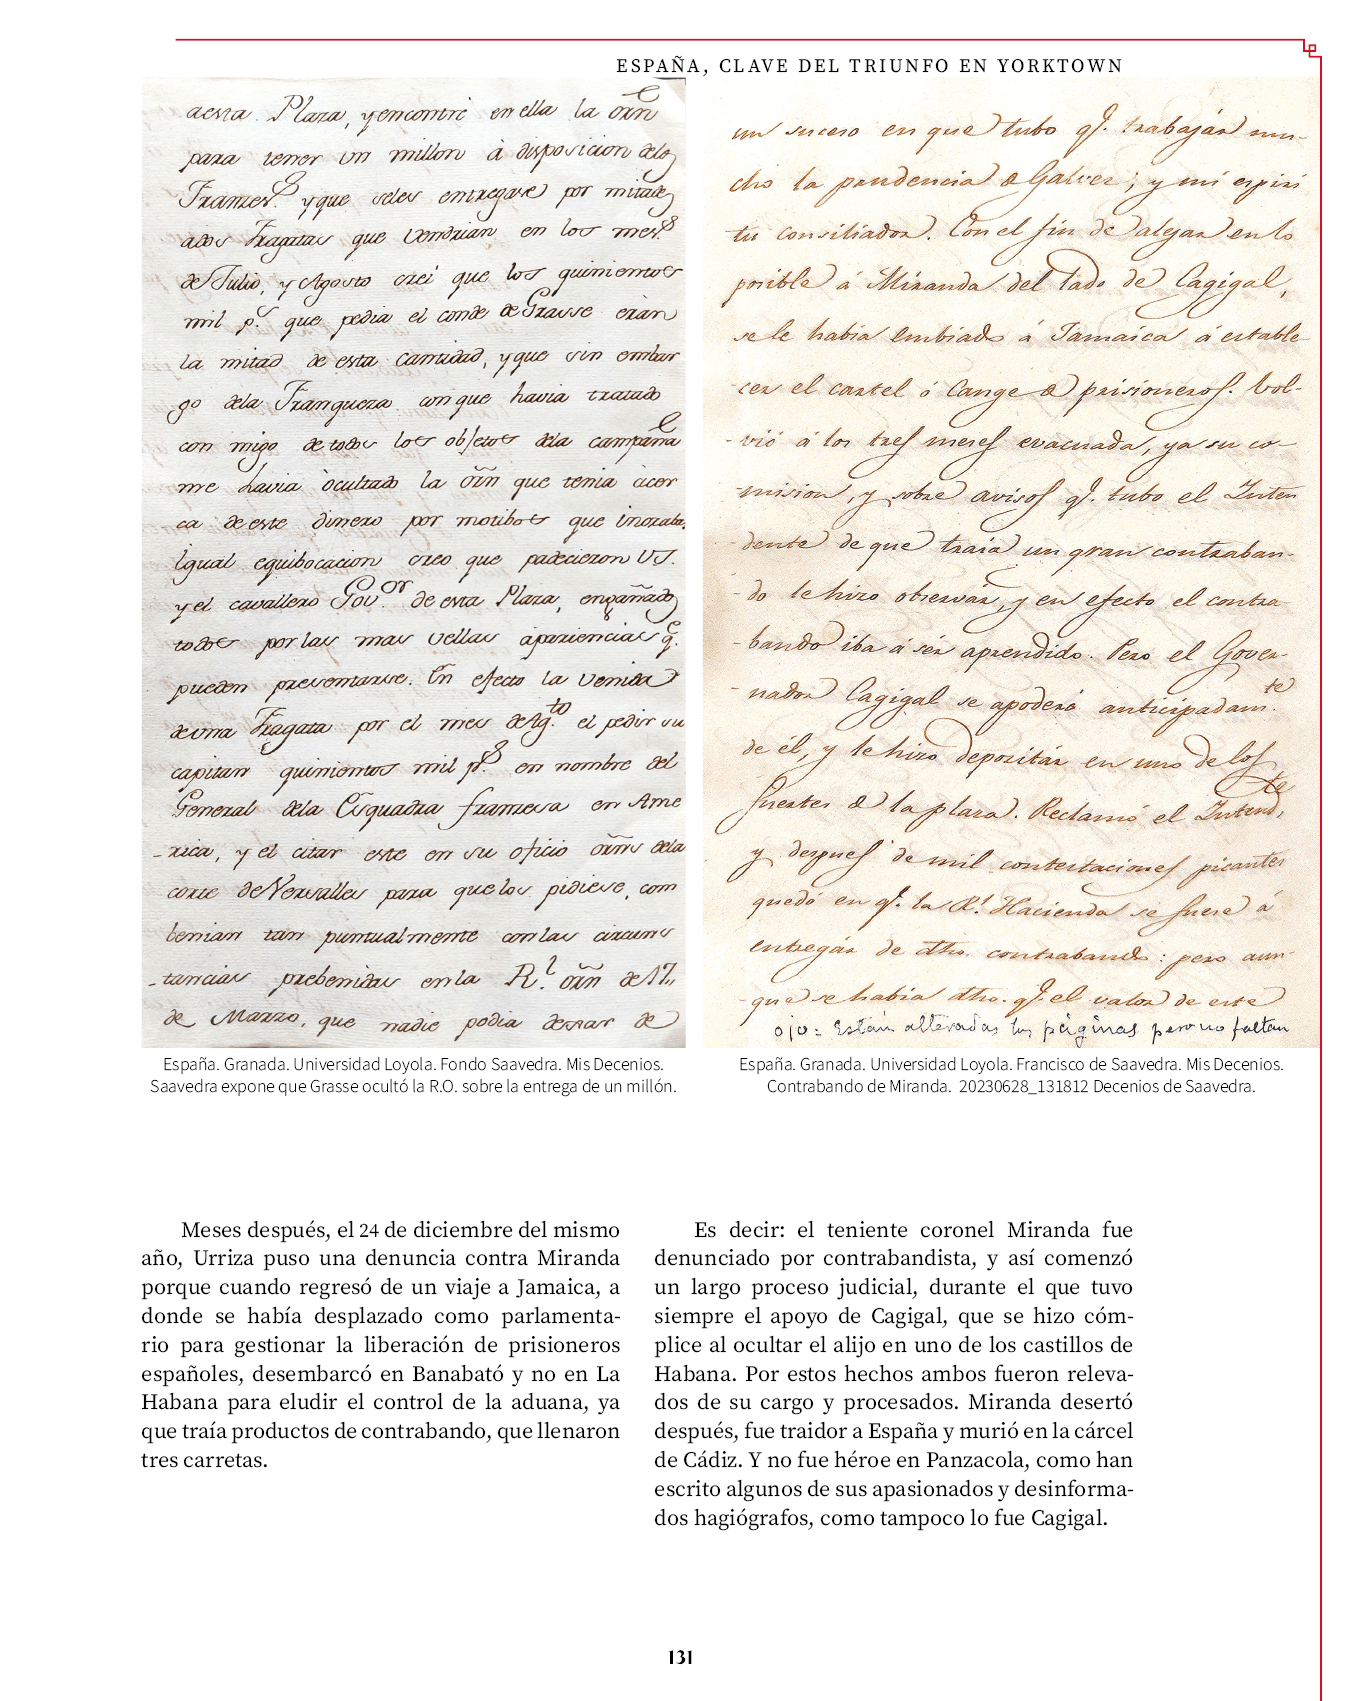 ESPAÑA, CLAVE DEL TRIUNFO EN YORKTOWN
aesta Plaza, y encontré en ella la orn̄
para tener un millon à disposicion delos
Franzes.s y que seles entregase por mitad
ados Fragatas que vendrian en los mes.s
de Julio, y Agosto crei que los quinientos
mil p.s que pedia el conde de Grasse eràn
la mitad de esta cantidad, y que sin embar
go dela Franqueza con que havia tratado
con migo de todos los objetos dela campaña
me havia òcultado la orn̄ que tenia àcer
ca de este dinero por motibos que inoraba.
Igual equibocacion creo que padecieron VS.
y el cavallero Gov.or de esta Plaza, engañados
todos por las mas vellas apariencias q.e
pueden presentarse. En efecto la venida
de una Fragata por el mes de Ag.to el pedir su
capitan quinientos mil p.s en nombre del
General dela Esquadra francesa en Ame
-rica, y el citar este en su oficio orn̄s dela
corte de Versalles para que los pidiese, com
benian tan puntualmente con las circuns
-tancias prebenidas en la R.l orn̄ de 17,,
de Marzo, que nadie podia dexar de
un suceso en que tubo q.e trabajár mu-
cho la prudencia de Galvez; y mi espiri
tu consiliador. Con el fin de alejar en lo
posible á Miranda del lado de Cagigal,
se le habia embiado á Jamaica á estable-
cer el cartel ó Cange de prisioneros. Vol-
-vió á los tres meses evacuada, ya su co-
-mision, y sobre avisos q.e tubo el Inten
-dente de que traía un gran contraban-
-do le hizo observár, y en efecto el contra-
-bando iba á sér aprendido. Pero el Gover-
-nador Cagigal se apoderó anticipadam.te
de él, y le hizo depositár en uno de los
fuertes de la plaza. Reclamó el Intend.te,
y despues de mil contestaciones picantes
quedó en q.e la R.l Hacienda se fuese á
entregár de dho. contrabando: pero aun-
-que se habia dho. q.e el valor de este
ojo = Están alteradas las páginas pero no faltan
España. Granada. Universidad Loyola. Fondo Saavedra. Mis Decenios.
Saavedra expone que Grasse ocultó la R.O. sobre la entrega de un millón.
España. Granada. Universidad Loyola. Francisco de Saavedra. Mis Decenios.
Contrabando de Miranda. 20230628_131812 Decenios de Saavedra.
Meses después, el 24 de diciembre del mismo
año, Urriza puso una denuncia contra Miranda
porque cuando regresó de un viaje a Jamaica, a
donde se había desplazado como parlamenta-
rio para gestionar la liberación de prisioneros
españoles, desembarcó en Banabató y no en La
Habana para eludir el control de la aduana, ya
que traía productos de contrabando, que llenaron
tres carretas.
Es decir: el teniente coronel Miranda fue
denunciado por contrabandista, y así comenzó
un largo proceso judicial, durante el que tuvo
siempre el apoyo de Cagigal, que se hizo cóm-
plice al ocultar el alijo en uno de los castillos de
Habana. Por estos hechos ambos fueron releva-
dos de su cargo y procesados. Miranda desertó
después, fue traidor a España y murió en la cárcel
de Cádiz. Y no fue héroe en Panzacola, como han
escrito algunos de sus apasionados y desinforma-
dos hagiógrafos, como tampoco lo fue Cagigal.
131